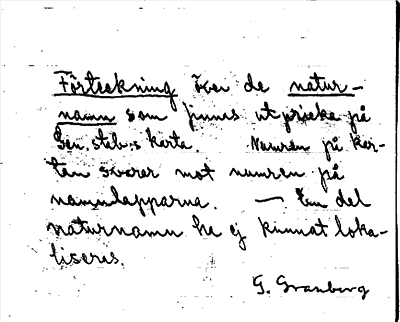 Förteckning över de natur-
namn som finnes utpricka på
Gen. stab:s karta. Numren på kar-
tan svarar mot numren på
namnlapparna. — En del
naturnamn ha ej kunnat loka-
liseras.
G. Granberg